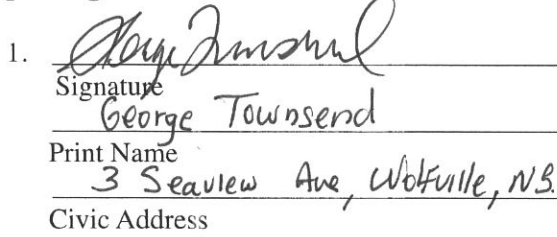 1. George Townsend
Signature
George Townsend
Print Name
3 Seaview Ave, Wolfville, NS.
Civic Address